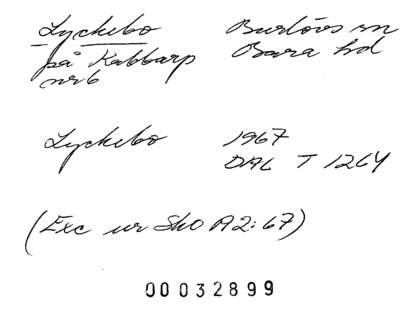 Lyckebo Burlövs sn
på Kabbarp Bara hd
nr 6
Lyckebo 1967
DAL T 1264
(Exc ur SkO A2:67)
00032899